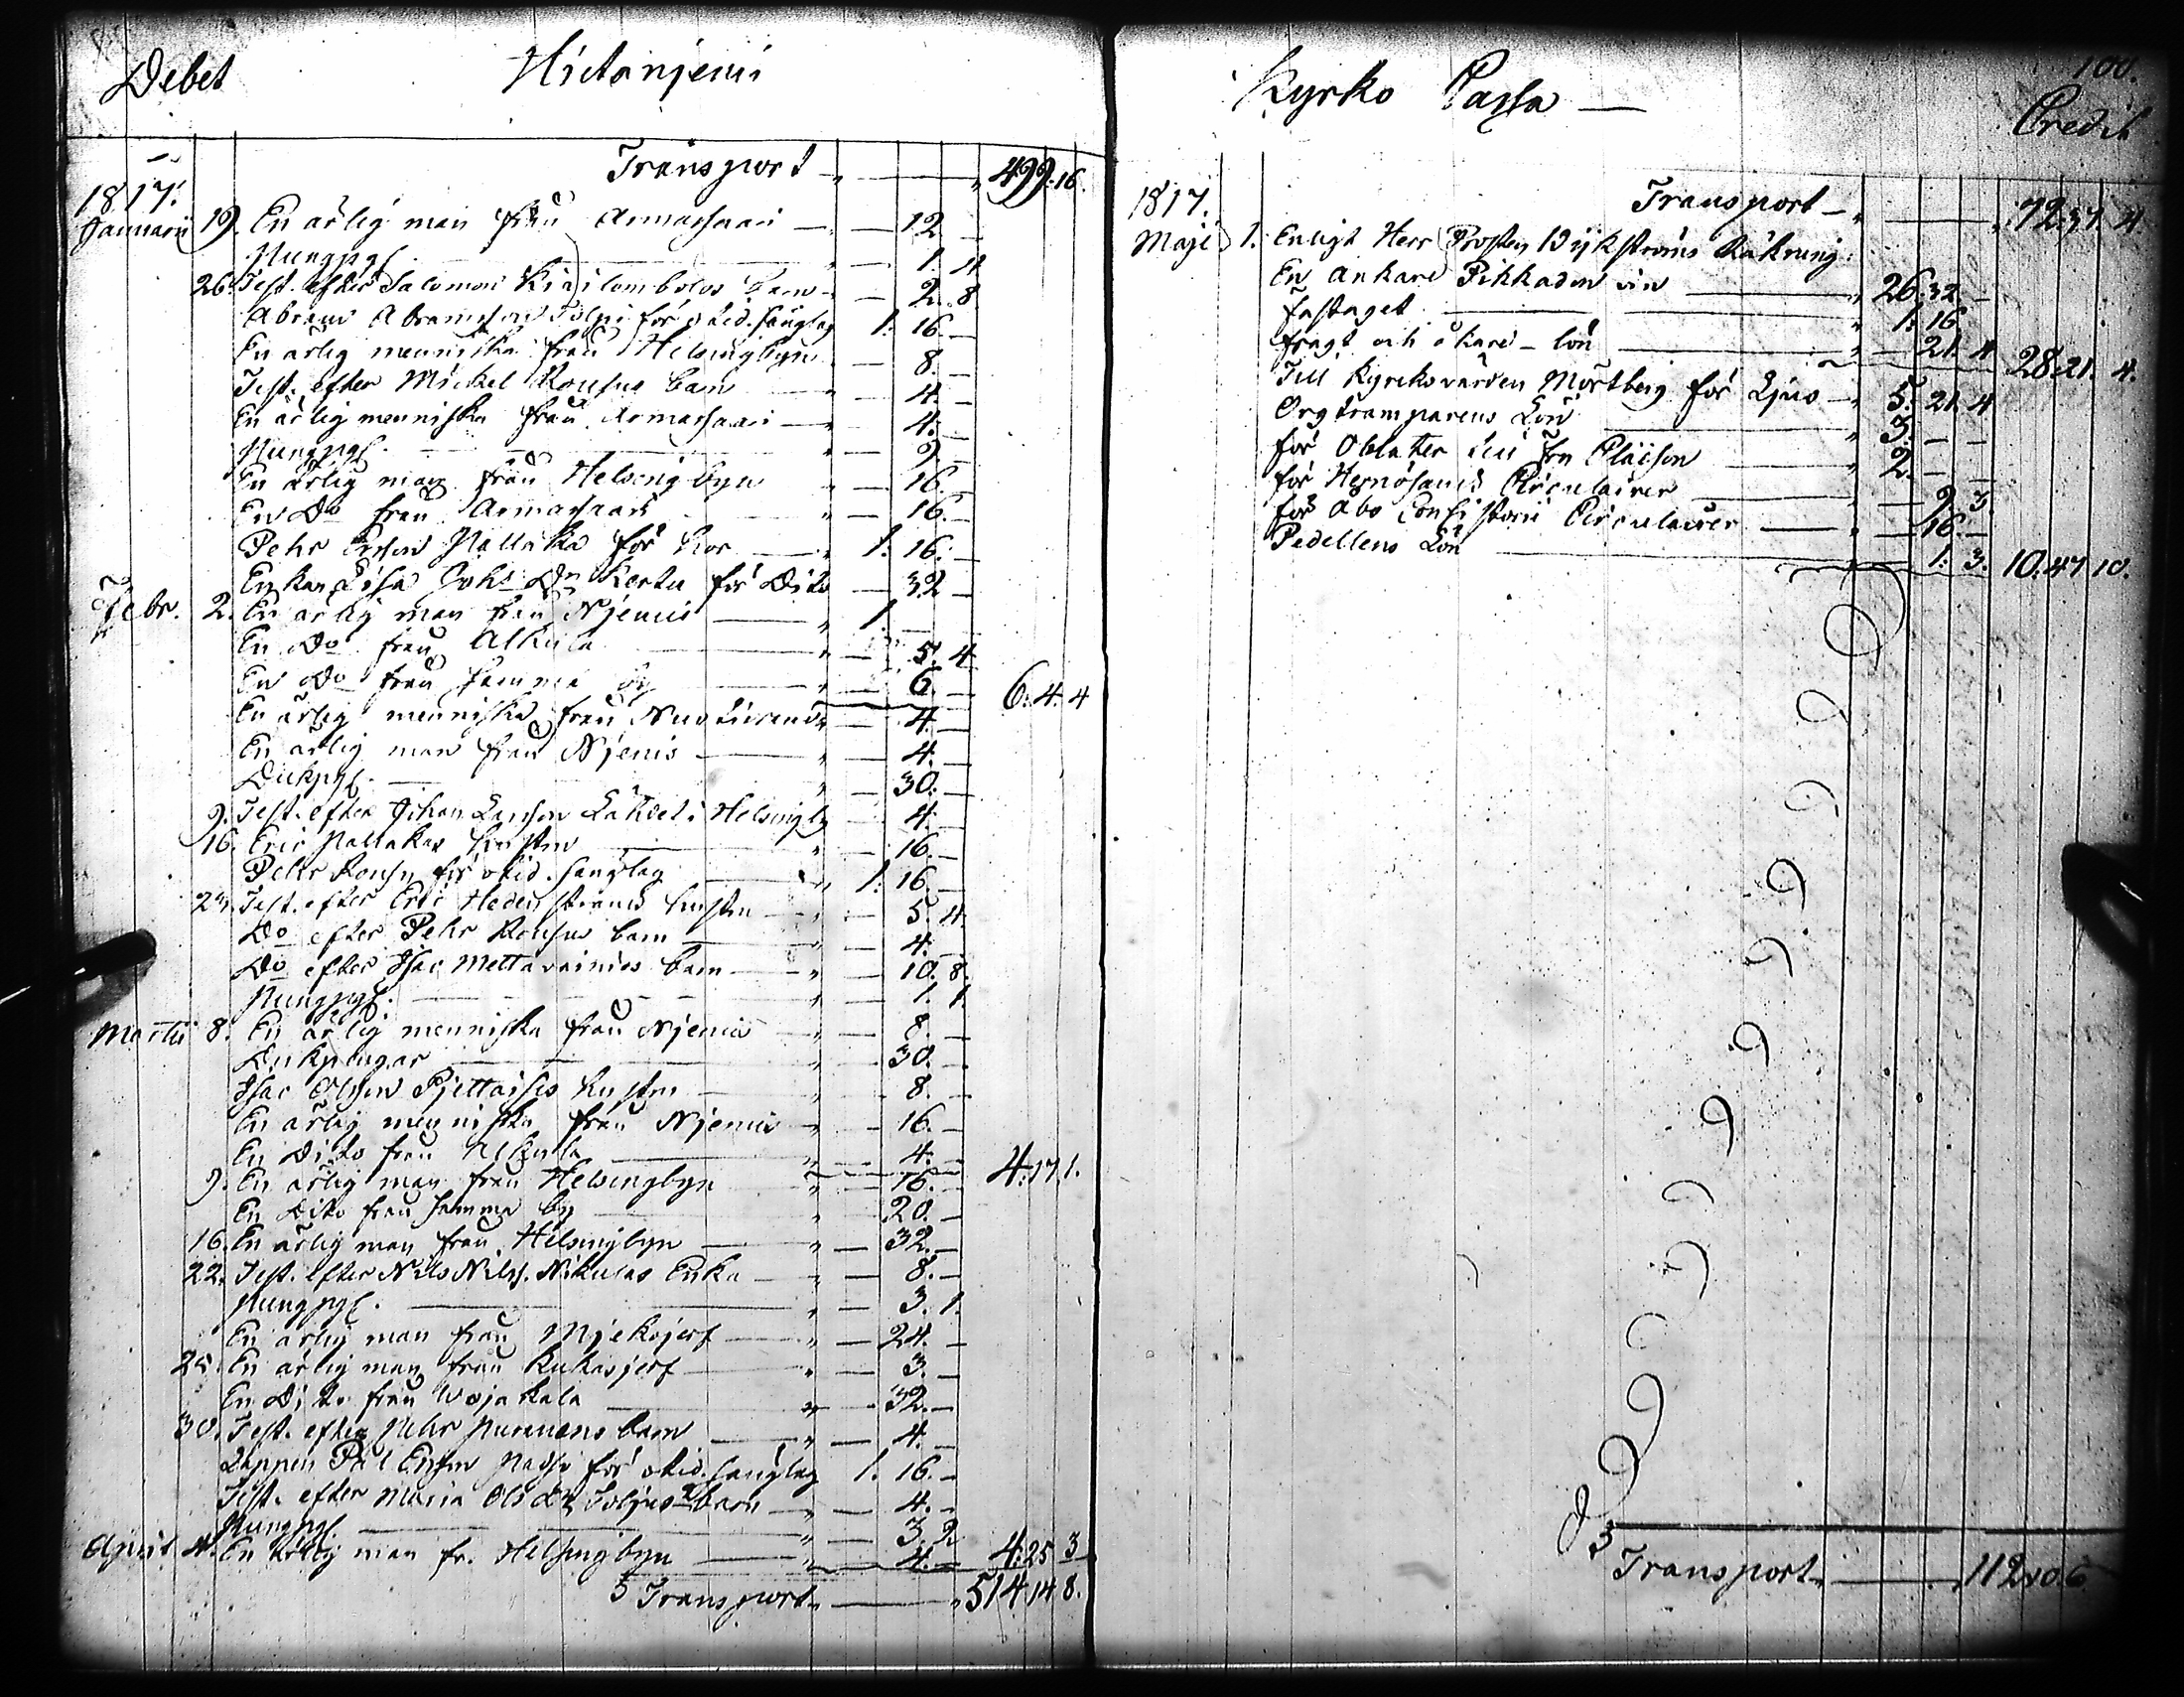 Debet Hietaniemi
Transport 499. 16.
1817.
Januarii 19. En ärlig man från Armassaari 12
Pungpgr. 1. 4
26. Test. efter Salomon Kirilombolos barn 2. 8
Abram Abramson för otid. sänglag 1. 16.
En ärlig menniska från Helsingbyn 8.
Test. efter Mickel Rousus barn 4.
En ärlig menniska från Armassaari 4.
Pungpgr. 9
En ärlig man från Helsingbyn 16.
En Do från Armassaari 16.
Pehr Ersson Pallaka för kor 1. 16.
Enkan Lisa Johs Dr Kertu för Dito 32
Febr. 2. En ärlig man från Njemis 1.
En Do från Alkula 5. 4
En Do från samma by 6. 6. 4. 4
En ärlig menniska från 4.
En ärlig man från Njemis 4.
30.
9. Test. efter Johan Larsson Lahdet i Helsingby 4.
16. Eric Pallakas hustru 16.
Pehr Rousu för otid. sänglag 1. 16.
23. Test. efter Eric Hedenströms hustru 5. 4.
Do efter Pehr Rousus barn 4.
Do efter Isac Mettavainios barn 10. 8.
Pungpgr. 1. 1.
Martii 8. En ärlig menniska från Njemis 8.
30.
Isac Olsson Pjettaises hustru 8.
En ärlig menniska från Njemis 16.
En Dito från Alkula 4. 4. 17. 1.
9. En ärlig man från Helsingbyn 16.
En Dito från samma by 20.
16. En ärlig man från Helsingbyn 32.
22. Test. efter Nils Nilss. Nikulas Enka 8.
Pungpgr. 3. 1.
En ärlig man från Mjekojerf 24.
25. En ärlig man från Kukasjerf 3.
En Dito från Wojakala 32.
30. Test. efter Pehr Puranens barn 4.
Lappen Pål Ersson för otid. sänglag 1. 16.
Test. efter Maria Ols Dr barn 4.
Pungpgr. 3. 2
April 4. En ärlig man fr. Helsingbyn 4. 4. 25 3
Transport 514. 14 8.
Kyrko Cassa
100.
Credit
Transport 72. 37. 4
1817.
Maji 1. Enligt Herr Prosten Wykströms Räkning:
En Ankare Pikkadon vin 26. 32.
fastaget 1. 16.
fragt och åkare-lön 21. 4 28. 21. 4.
Till Kyrkovärden Mörtberg för Ljus 5. 21. 4
Orgtramparens Lön 3.
för Oblater till Fru Claison 2.
för Hernösands Circulairer 9. 3.
för Åbo Consistorii Circulairer 16.
Pedellens Lön 1. 3. 10. 47. 10.
Transport 112. 10. 6.